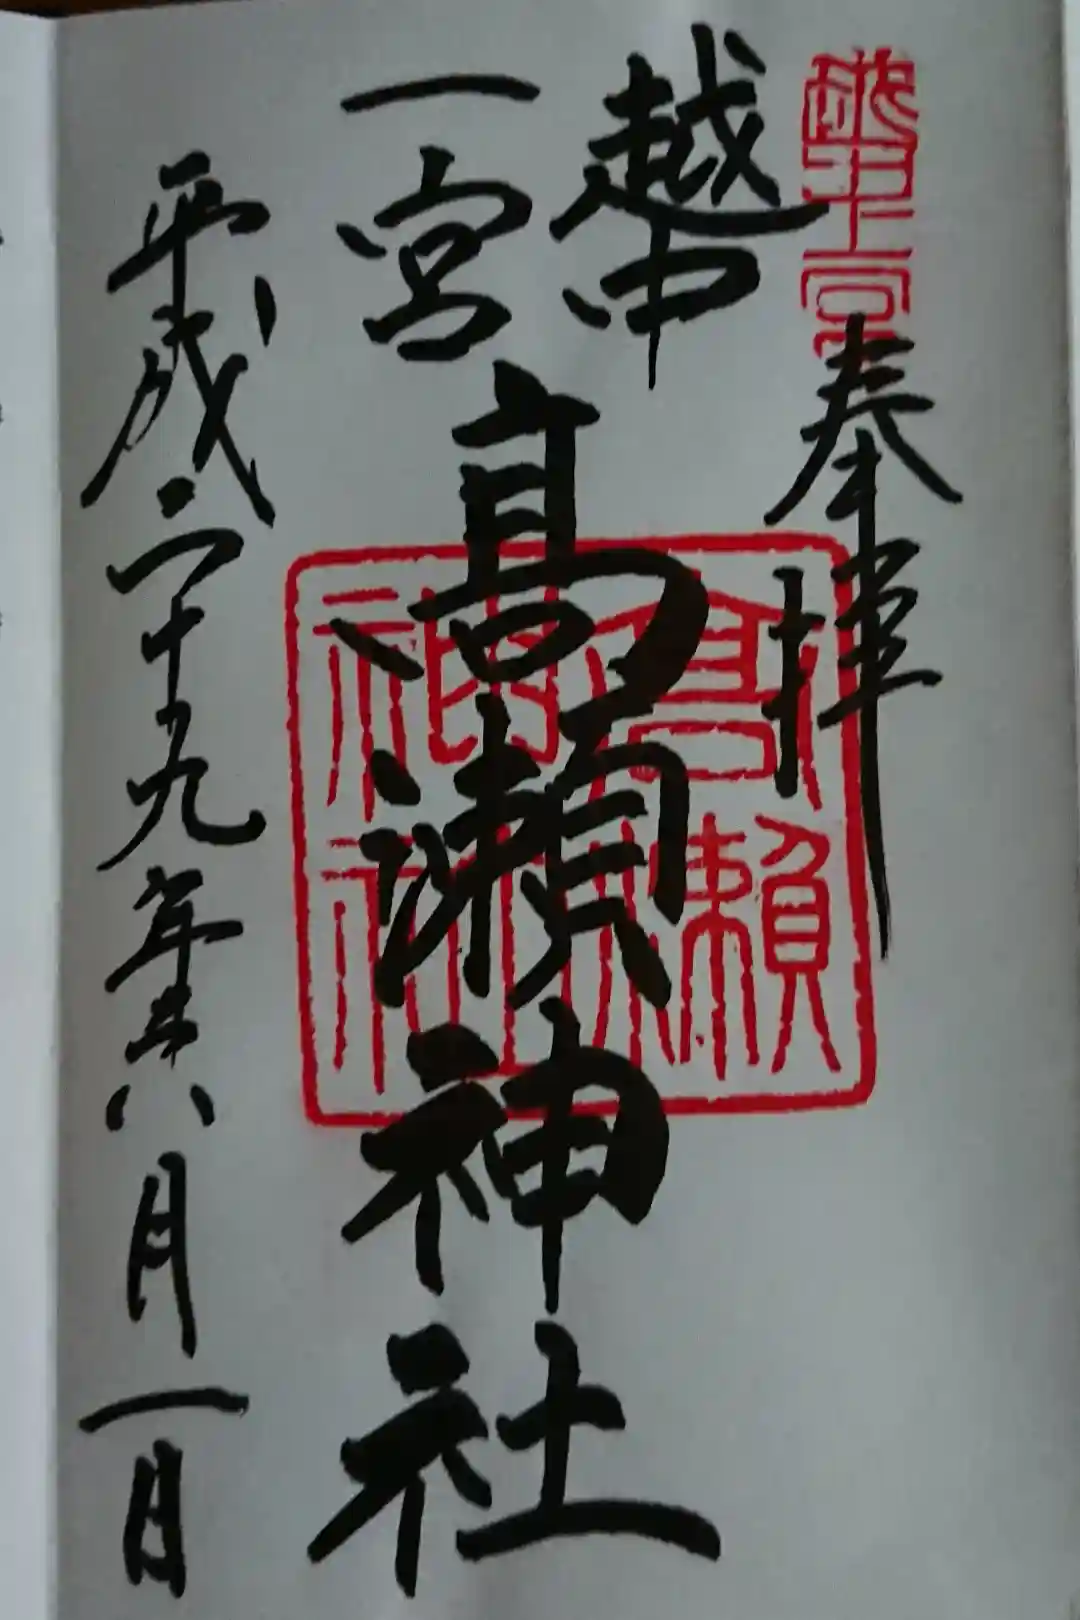 奉拝
越中
一宮
高瀬神社
平成二十九年六月一日
高瀬神社